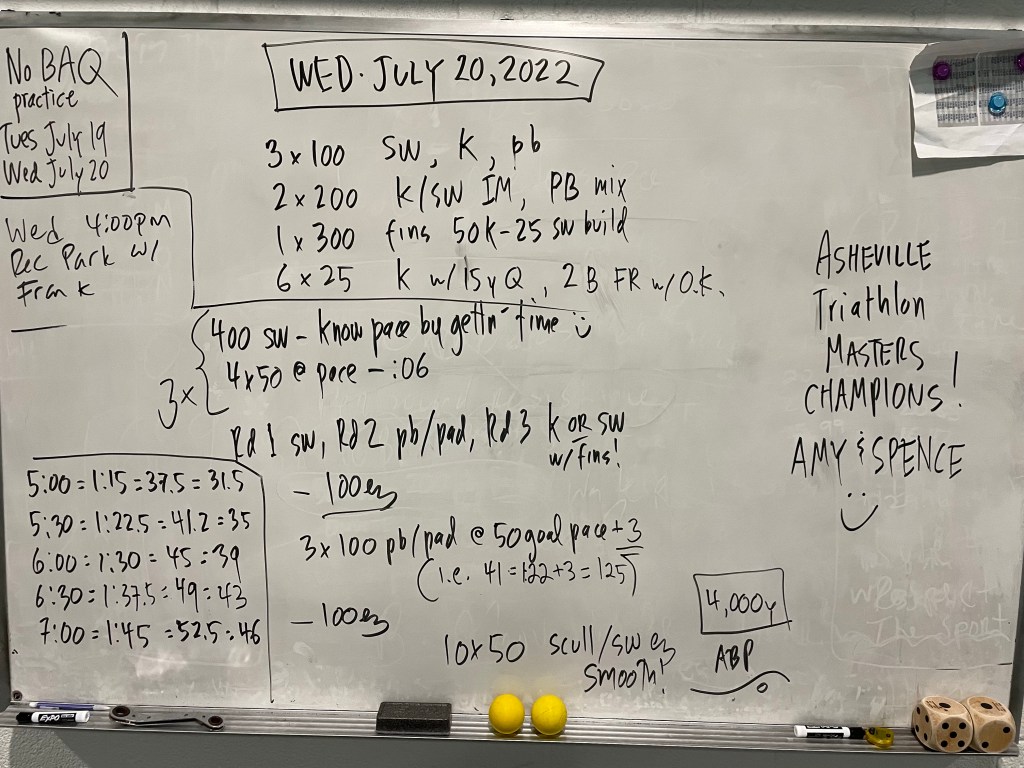 No BAQ
practice
Tues July 19
Wed July 20
Wed 4:00pm
Rec Park w/
Frank
WED. JULY 20, 2022
3 x 100 sw, k, pb
2 x 200 k/sw IM, PB mix
1 x 300 fins 50k-25 sw build
6 x 25 k w/15y Q, 2 B FR w/O.K.
3x
400 sw - know pace by gettn' time
4x50 @ pace - :06
Rd 1 sw, Rd 2 pb/pad, Rd 3 k OR sw
w/fins!
- 100 ez
3 x 100 pb/pad @ 50 goal pace + 3
(i.e. 41 = 1:22+3 = 1:25)
- 100 ez
10x50 scull/sw ez
smooth!
4,000y
ABP
5:00 = 1:15 = 37.5 = 31.5
5:30 = 1:22.5 = 41.2 = 35
6:00 = 1:30 = 45 = 39
6:30 = 1:37.5 = 49 = 43
7:00 = 1:45 = 52.5 = 46
ASHEVILLE
Triathlon
MASTERS
CHAMPIONS!
AMY & SPENCE
The Sport
EXPO
EXPO